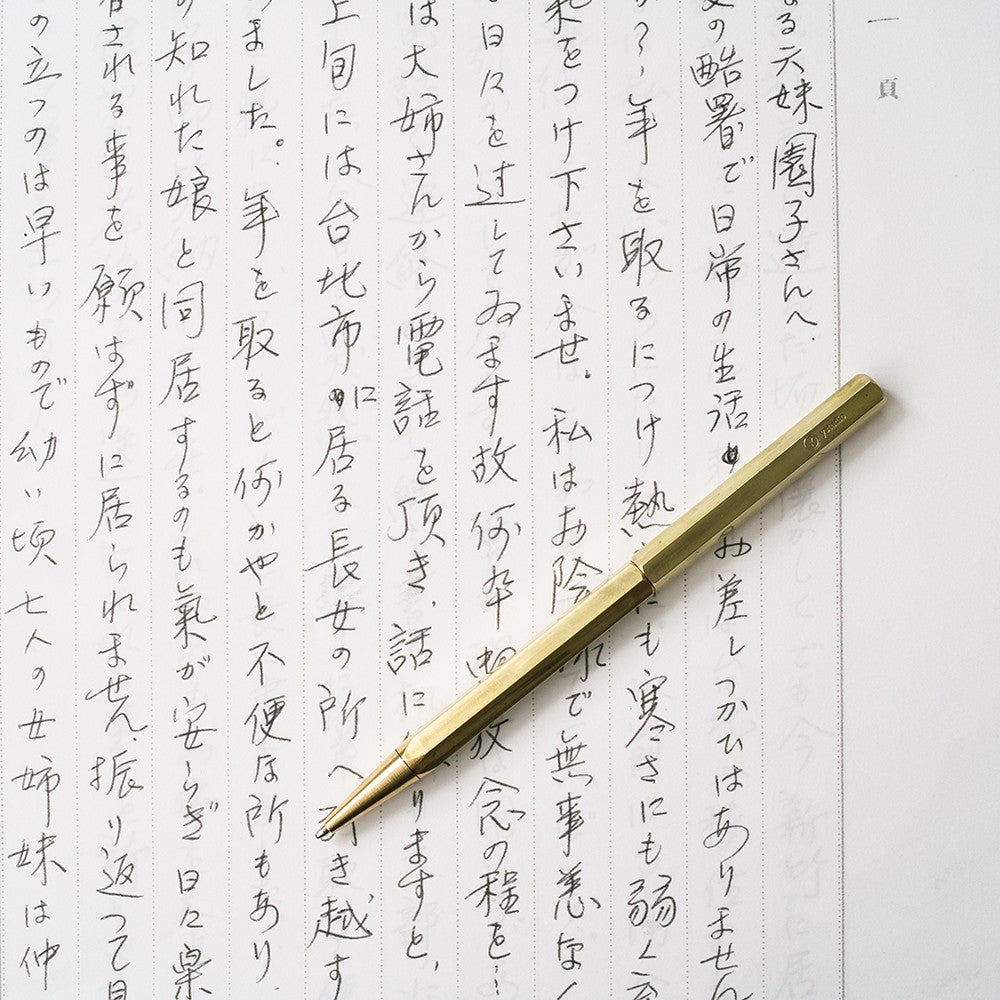 一頁
る六妹園子さんへ.
の酷暑で日常の生活 お差しつかひはありません
か?、年を取るにつけ熱 にも寒さにも弱く
をつけ下さいませ。私はお陰 で無事恙なく
日々を過してゐます故何卒 放念の程を…
は大姉さんから電話を頂き、話に りますと、
上旬には台北市に居る長女の所へ き越す
ました。年を取ると何かやと不便な所もあり
の知れた娘と同居するのも氣が安らぎ日々楽
される事を願はずに居られません、振り返って
の立つのは早いもので幼い頃七人の女姉妹は仲
ystudio